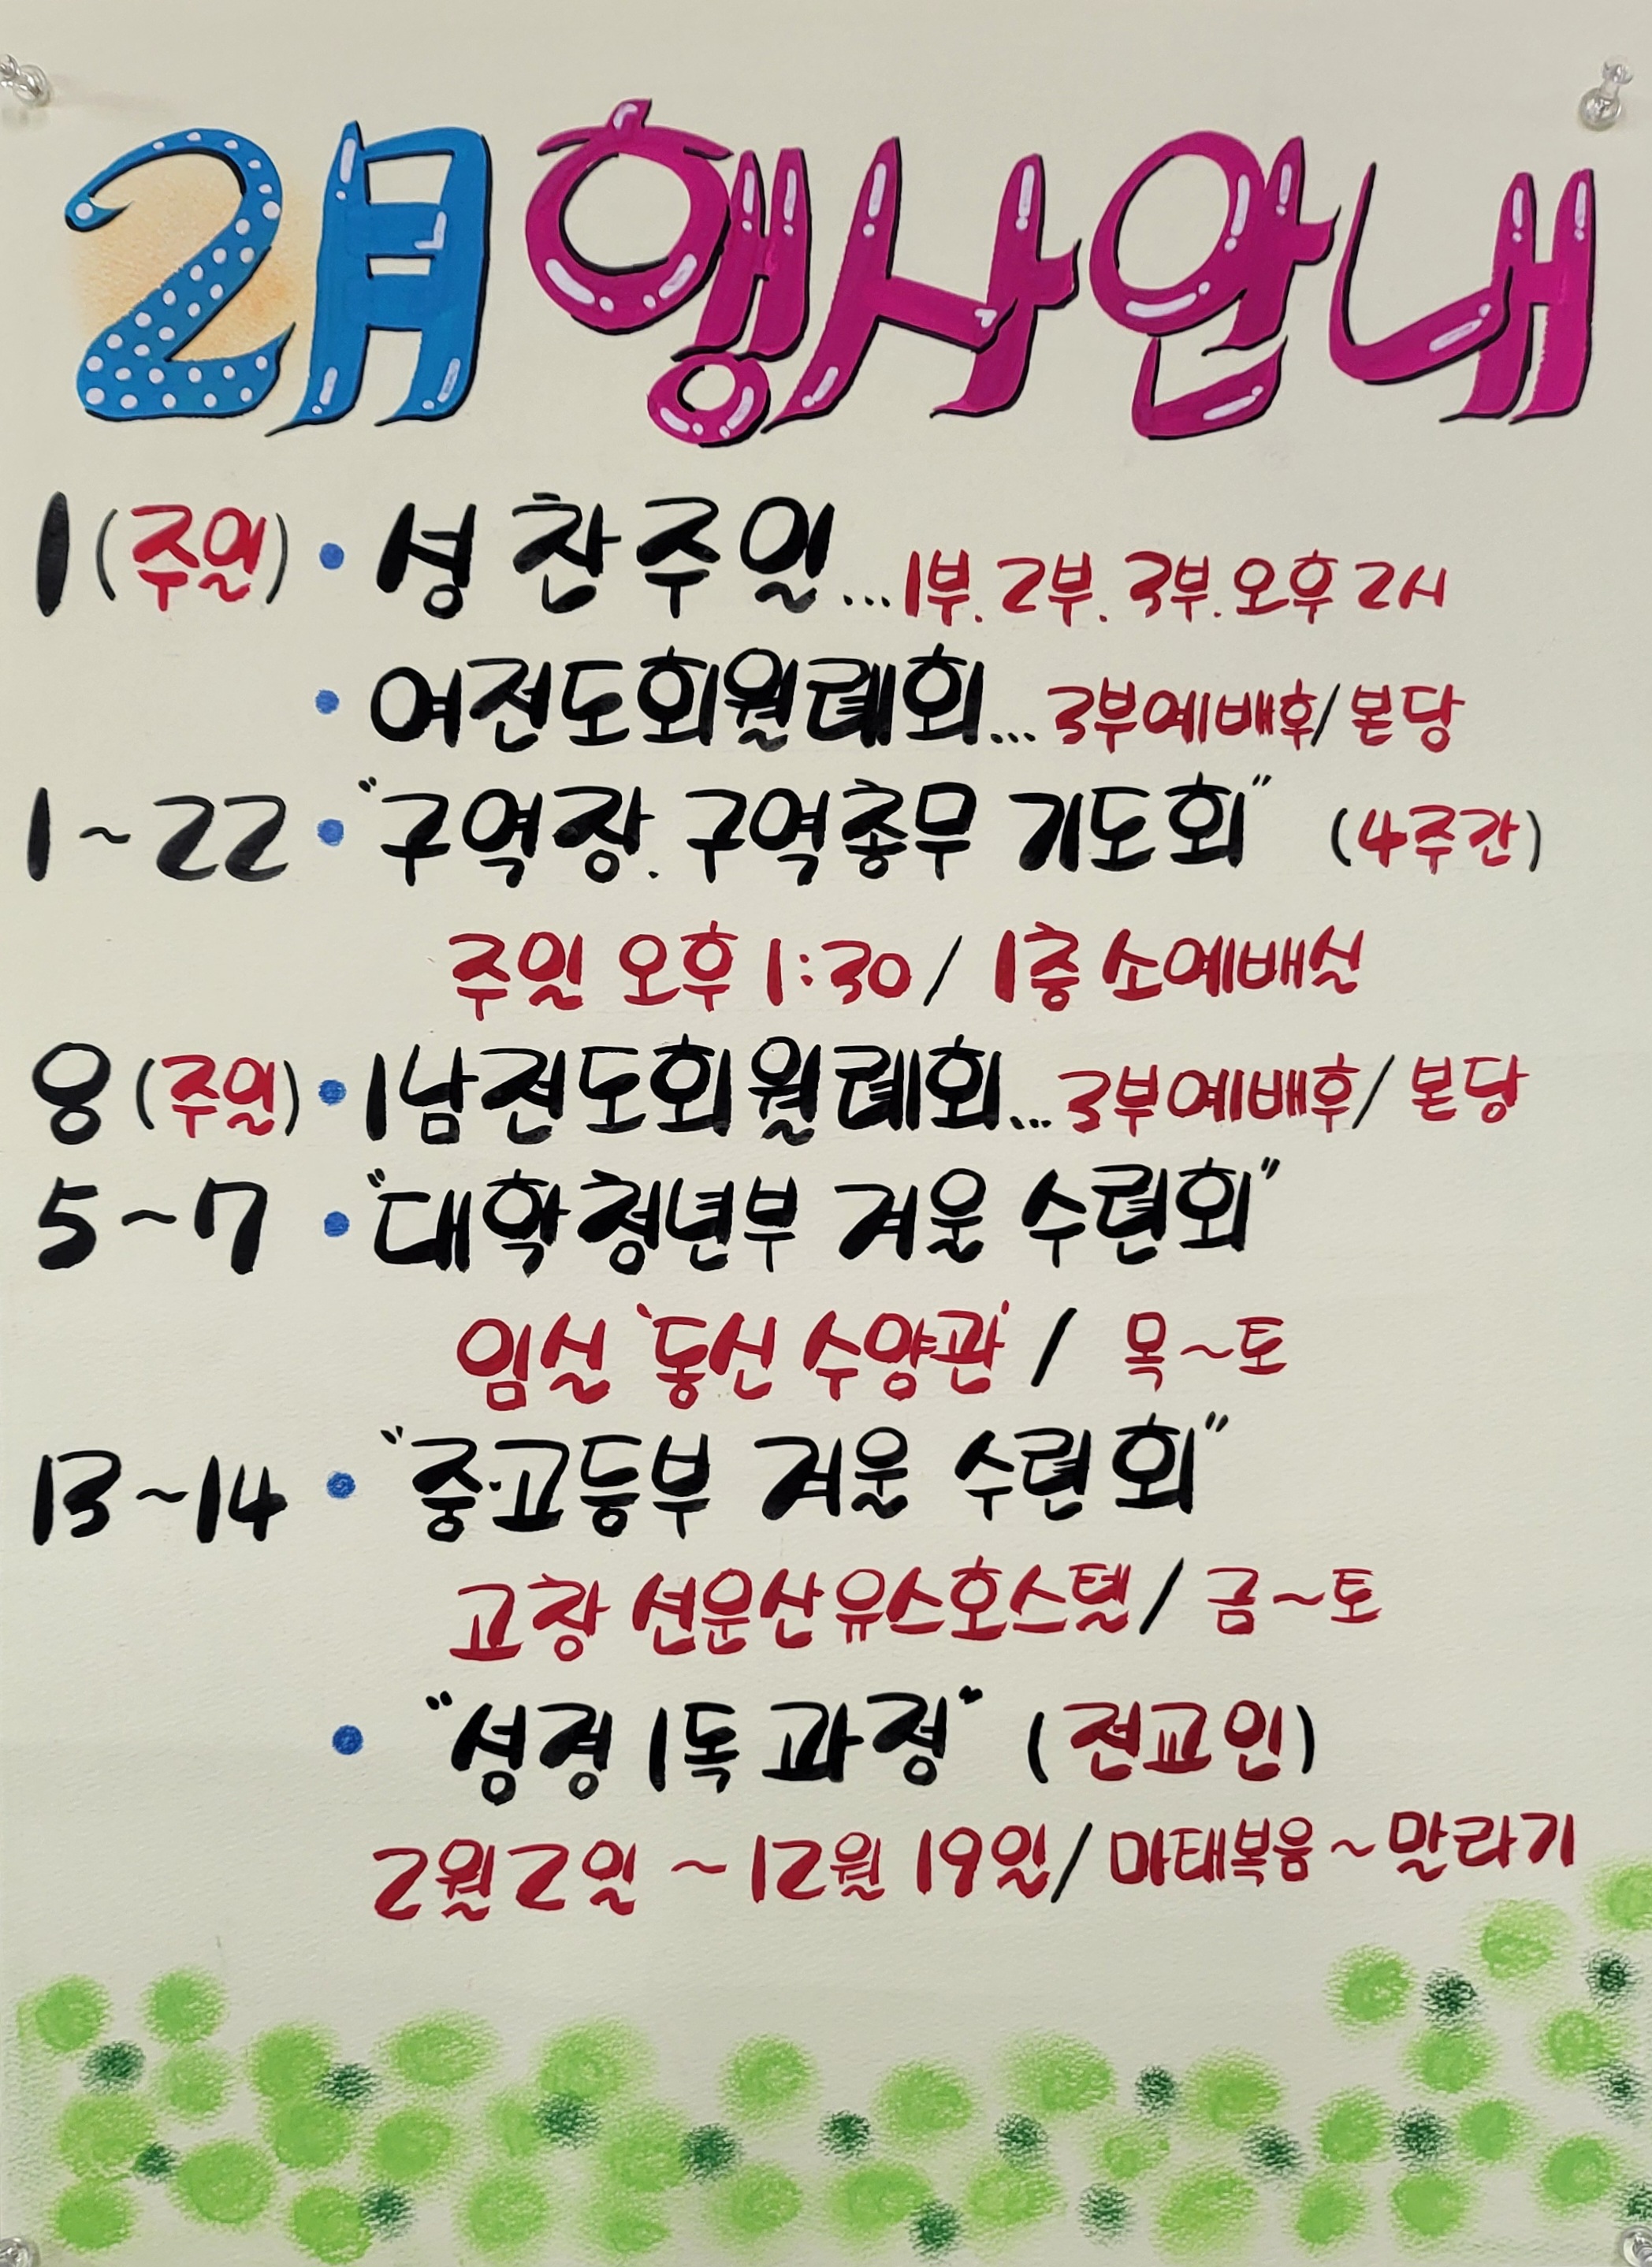 2月 행사안내
1(주일) • 성찬주일...1부.2부.3부.오후2시
• 여전도회월례회...3부예배후/본당
1~22 • "구역장.구역총무 기도회" (4주간)
주일 오후 1:30/ 1층 소예배실
8(주일) • 1남전도회월례회...3부예배후/본당
5~7 • "대학청년부 겨울 수련회"
임실 '동신 수양관' / 목~토
13~14 • "중·고등부 겨울 수련회"
고창 선운산유스호스텔/ 금~토
• "성경1독과정" (전교인)
2월2일 ~12월 19일/마태복음~말라기